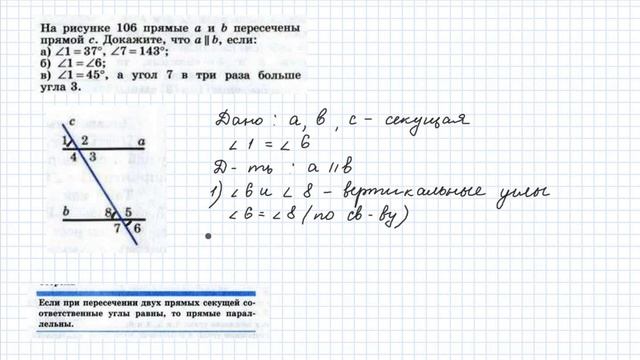 На рисунке 106 прямые a и b пересечены
прямой c. Докажите, что a ∥ b, если:
а) ∠1 = 37°, ∠7 = 143°;
б) ∠1 = ∠6;
в) ∠1 = 45°, а угол 7 в три раза больше
угла 3.
c
1 2 a
4 3
b 8 5
7 6
Дано: a, b, c – секущая
∠1 = ∠6
Д-ть: a ∥ b
1) ∠6 и ∠8 – вертикальные углы
∠6 = ∠8 (по св-ву)
Если при пересечении двух прямых секущей со-
ответственные углы равны, то прямые парал-
лельны.